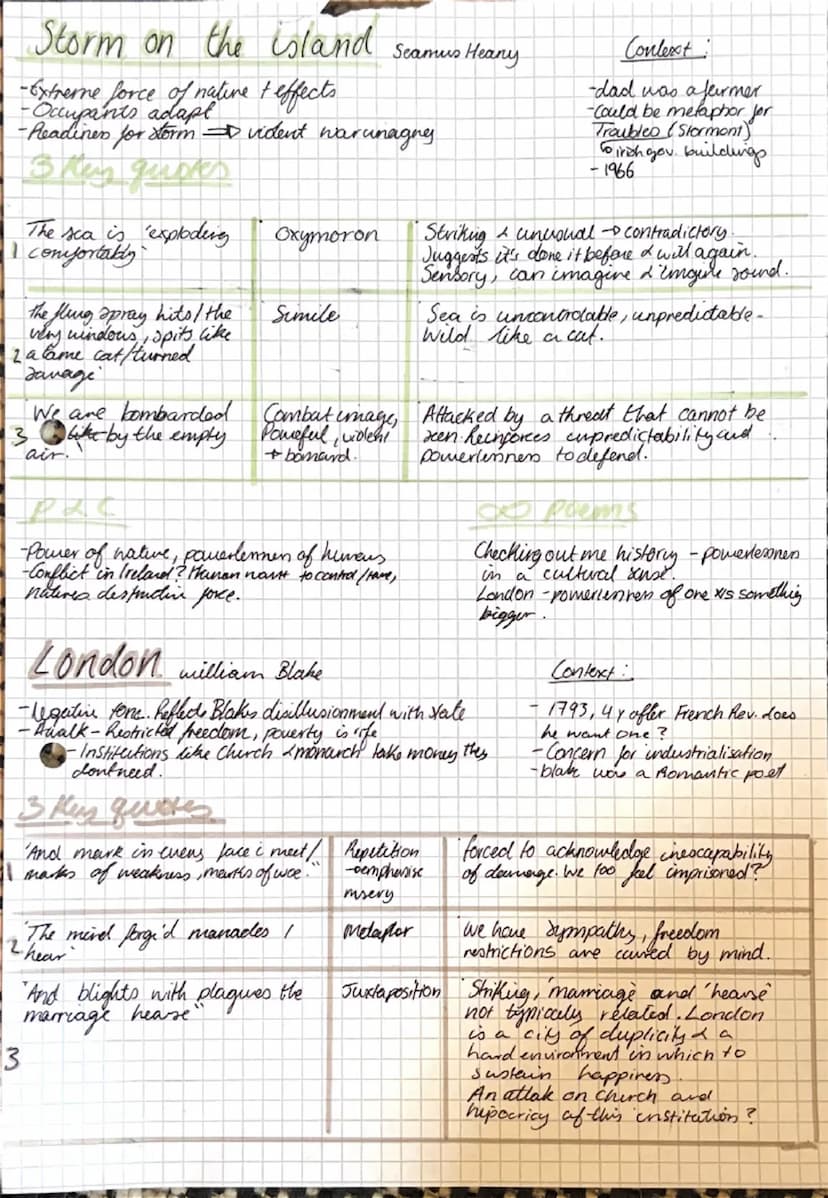 Storm on the island Seamus Heany
Context:
-Extreme force of nature + effects
-Occupants adapt
-Readiness for storm ⇒ violent war imagrey
-dad was a farmer
-Could be metaphor for
Troubles (Stormont)
↳ irish gov. buildings
- 1966
3 Key quotes
1
The sea is 'exploding
comfortably'
Oxymoron
Striking & unusual → contradictory.
Suggests it's done it before & will again.
Sensory, can imagine & imagine sound.
2
the flung spray hits/the
very windows, spits like
a tame cat/turned
savage'
Simile
Sea is uncontrolable, unpredictable -
Wild like a cat.
3
'We are bombarded
by the empty
air.'
Combat image,
Powerful, violent
+ bomard.
Attacked by a threat that cannot be
seen. Reinforces unpredictability and
powerlessness to defend.
P & C
-Power of nature, powerlessness of humans
-Conflict in Ireland? Human want to control/tame,
natures destructive force.
∞ poems
Checking out me history - powerlessness
in a cultural sense.
London - powerlessness of one vs something
bigger.
London william Blake
Context:
-Negative tone. Reflects Blakes disillusionment with state
-A walk - Restricted freedom, poverty is rife
- Institutions like Church & monarch take money they
dont need.
- 1793, 4 y after French Rev. does
he want one?
- Concern for industrialisation
- blake was a Romantic poet
3 Key quotes
1
'And mark in every face i meet/
marks of weakness, marks of woe.''
Repetition
-emphasise
misery
forced to acknowledge inescapability
of damage. We too feel imprisoned?
2
'The mind forge'd manacles I
hear'
Metaphor
We have sympathy, freedom
restrictions are caused by mind.
3
"And blights with plagues the
marriage hearse"
Juxtaposition
Striking, 'marriage' and 'hearse'
not typically related. London
is a city of duplicity & a
hard environment in which to
sustain happiness.
An attak on church and
hipocricy of this institution?